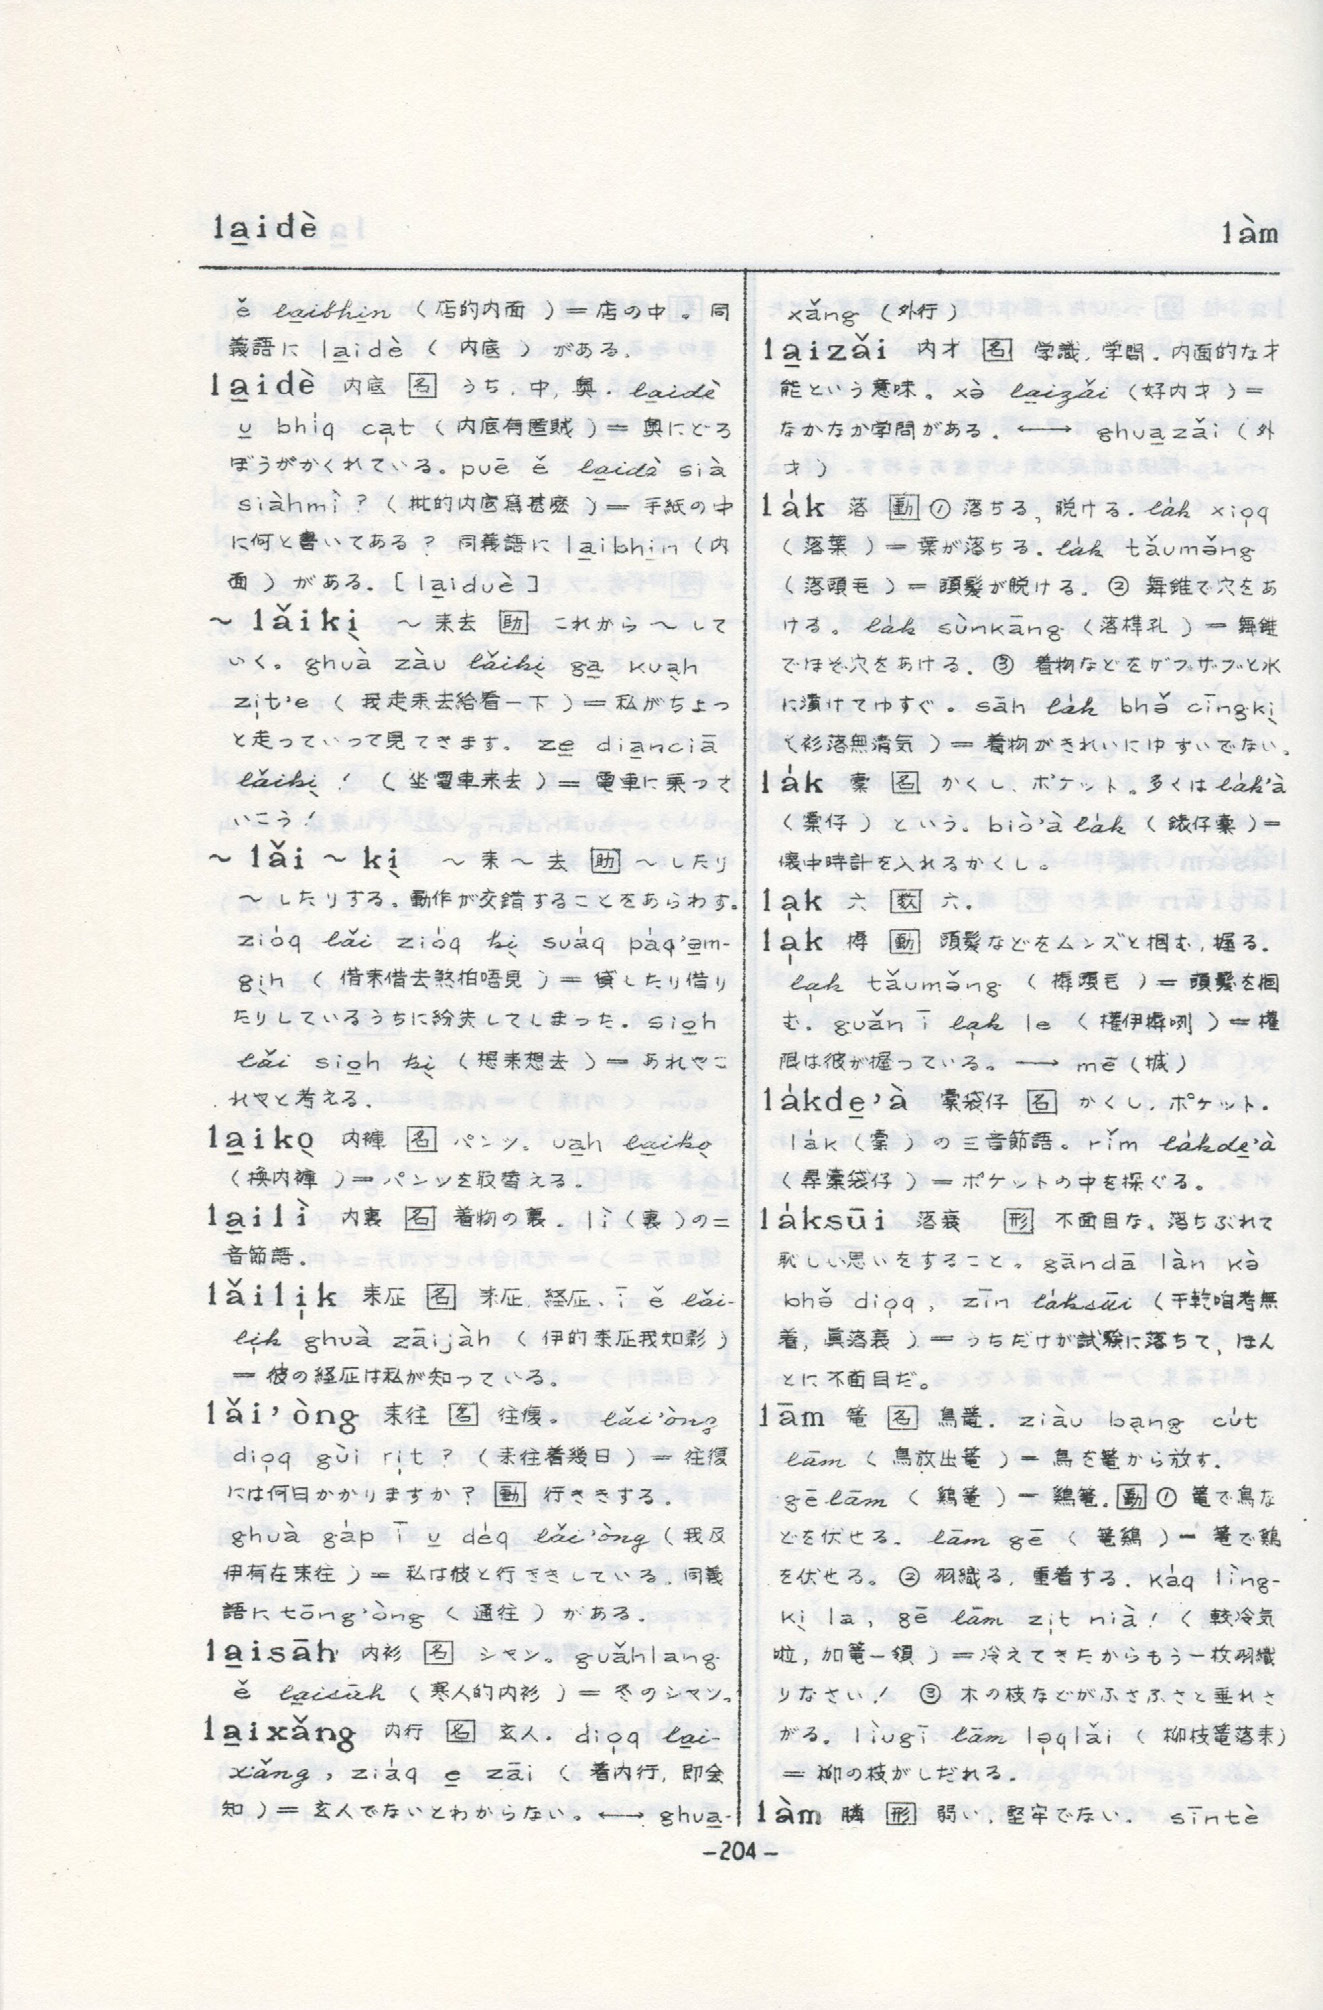 la̱idè
làm
ě la̱ibhi̱n (店的内面)＝店の中。同
義語に la̱idè (内底) がある。
la̱idè 内底 名 うち,中,奥. la̱idè
u̱ bhiq ca̱t (内底有匿賊)＝奥にどろ
ぼうがかくれている。puē ě la̱idè sià
siàhmì? (批的内底寫甚麼)＝手紙の中
に何と書いてある? 同義語に la̱ibhi̱n (内
面) がある. [la̱iduè]
～lǎikị ～来去 助 これから～して
いく。ghuà zàu lǎikị ga̱ kua̱h
zịt'e (我走来去給看一下)＝私がちょっ
と走っていって見てきます。ze̱ dia̱nciā
lǎikị! (坐電車来去)＝電車に乗って
いこう!
～lǎi～kị ～来～去 助 ～したり
～したりする。動作が交錯することをあらわす。
zió̍q lǎi zió̍q kị suáq páq'ə̱m-
gi̱h (借来借去煞拍唔見)＝貸したり借り
たりしているうちに紛失してしまった. sio̱h
lǎi sio̱h kị (想来想去)＝あれやこ
れやと考える.
la̱ikọ 内褲 名 パンツ. ua̱h la̱ikọ
(換内褲)＝パンツを取替える.
la̱ilì 内裏 名 着物の裏. lì (裏)の二
音節語.
lǎilịk 来歴 名 来歴,経歴. ī ě lǎi-
lịk ghuà zāijàh (伊的来歴我知影)
＝彼の経歴は私が知っている.
lǎi'òng 来往 名 往復. lǎi'òng
diọq gùi rịt? (来往着幾日)＝往復
には何日かかりますか? 動 行ききする.
ghuà ga̍p ī u̱ déq lǎi'òng (我及
伊有在来往)＝私は彼と行ききしている.同義
語に tōng'òng (通往) がある.
la̱isāh 内衫 名 シャツ. guǎhlang
ě la̱isāh (寒人的内衫)＝冬のシャツ.
la̱ixǎng 内行 名 玄人. diọq la̱i-
xǎng, ziáq e̱ zāi (着内行,即会
知)＝玄人でないとわからない.←→ghua̱-
xǎng (外行)
la̱izǎi 内才 名 学識,学問.内面的な才
能という意味。xə̀ la̱izǎi (好内才)＝
なかなか学問がある. ←→ ghua̱zǎi (外
才)
la̍k 落 動 ①落ちる,脱ける. la̍k xiọq
(落葉)＝葉が落ちる. la̍k tǎumə̌ng
(落頭毛)＝頭髪が脱ける. ② 舞錐で穴をあ
ける。la̍k sùnkāng (落榫孔)＝舞錐
でほぞ穴をあける. ③ 着物などをザブザブと水
に漬けてゆすぐ。sāh la̍k bhə̌ cīngkị
(衫落無清気)＝着物がきれいにゆすいでない.
la̍k 橐 名 かくし,ポケット。多くは la̍k'à
(橐仔) という。biò'à la̍k (錶仔橐)＝
懐中時計を入れるかくし。
lạk 六 数 六.
lạk 搙 動 頭髪などをムンズと掴む,握る.
lạk tǎumə̌ng (搙頭毛)＝頭髪を掴
む. guǎn ī lạk le (權伊搙咧)＝權
限は彼が握っている. ─→ mē (搣)
la̍kde̱'à 橐袋仔 名 かくし,ポケット.
la̍k (橐) の三音節語. rǐm la̍kde̱'à
(尋橐袋仔)＝ポケットの中を探ぐる.
la̍ksūi 落衰 形 不面目な,落ちぶれて
恥しい思いをすること。gāndā làn kə̀
bhə̌ diọq, zīn la̍ksūi (干乾咱考無
着,眞落衰)＝うちだけが試験に落ちて,ほん
とに不面目だ.
lām 篭 名 鳥篭. ziàu ba̱ng cu̍t
lām (鳥放出篭)＝鳥を篭から放す.
gē lām (鶏篭)＝鶏篭. 動 ① 篭で鳥な
どを伏せる. lām gē (篭鶏)＝篭で鶏
を伏せる. ② 羽織る,重着する. ka̍q lìng-
kị la, gē lām zịt nià! (較冷気
啦,加篭一領)＝冷えてきたからもう一枚羽織
りなさい! ③ 木の枝などがふさふさと垂れさ
がる. lìugī lām lə̣qlǎi (柳枝篭落来)
＝柳の枝がしだれる.
làm 形 弱い,堅牢でない. sīntè
-204-